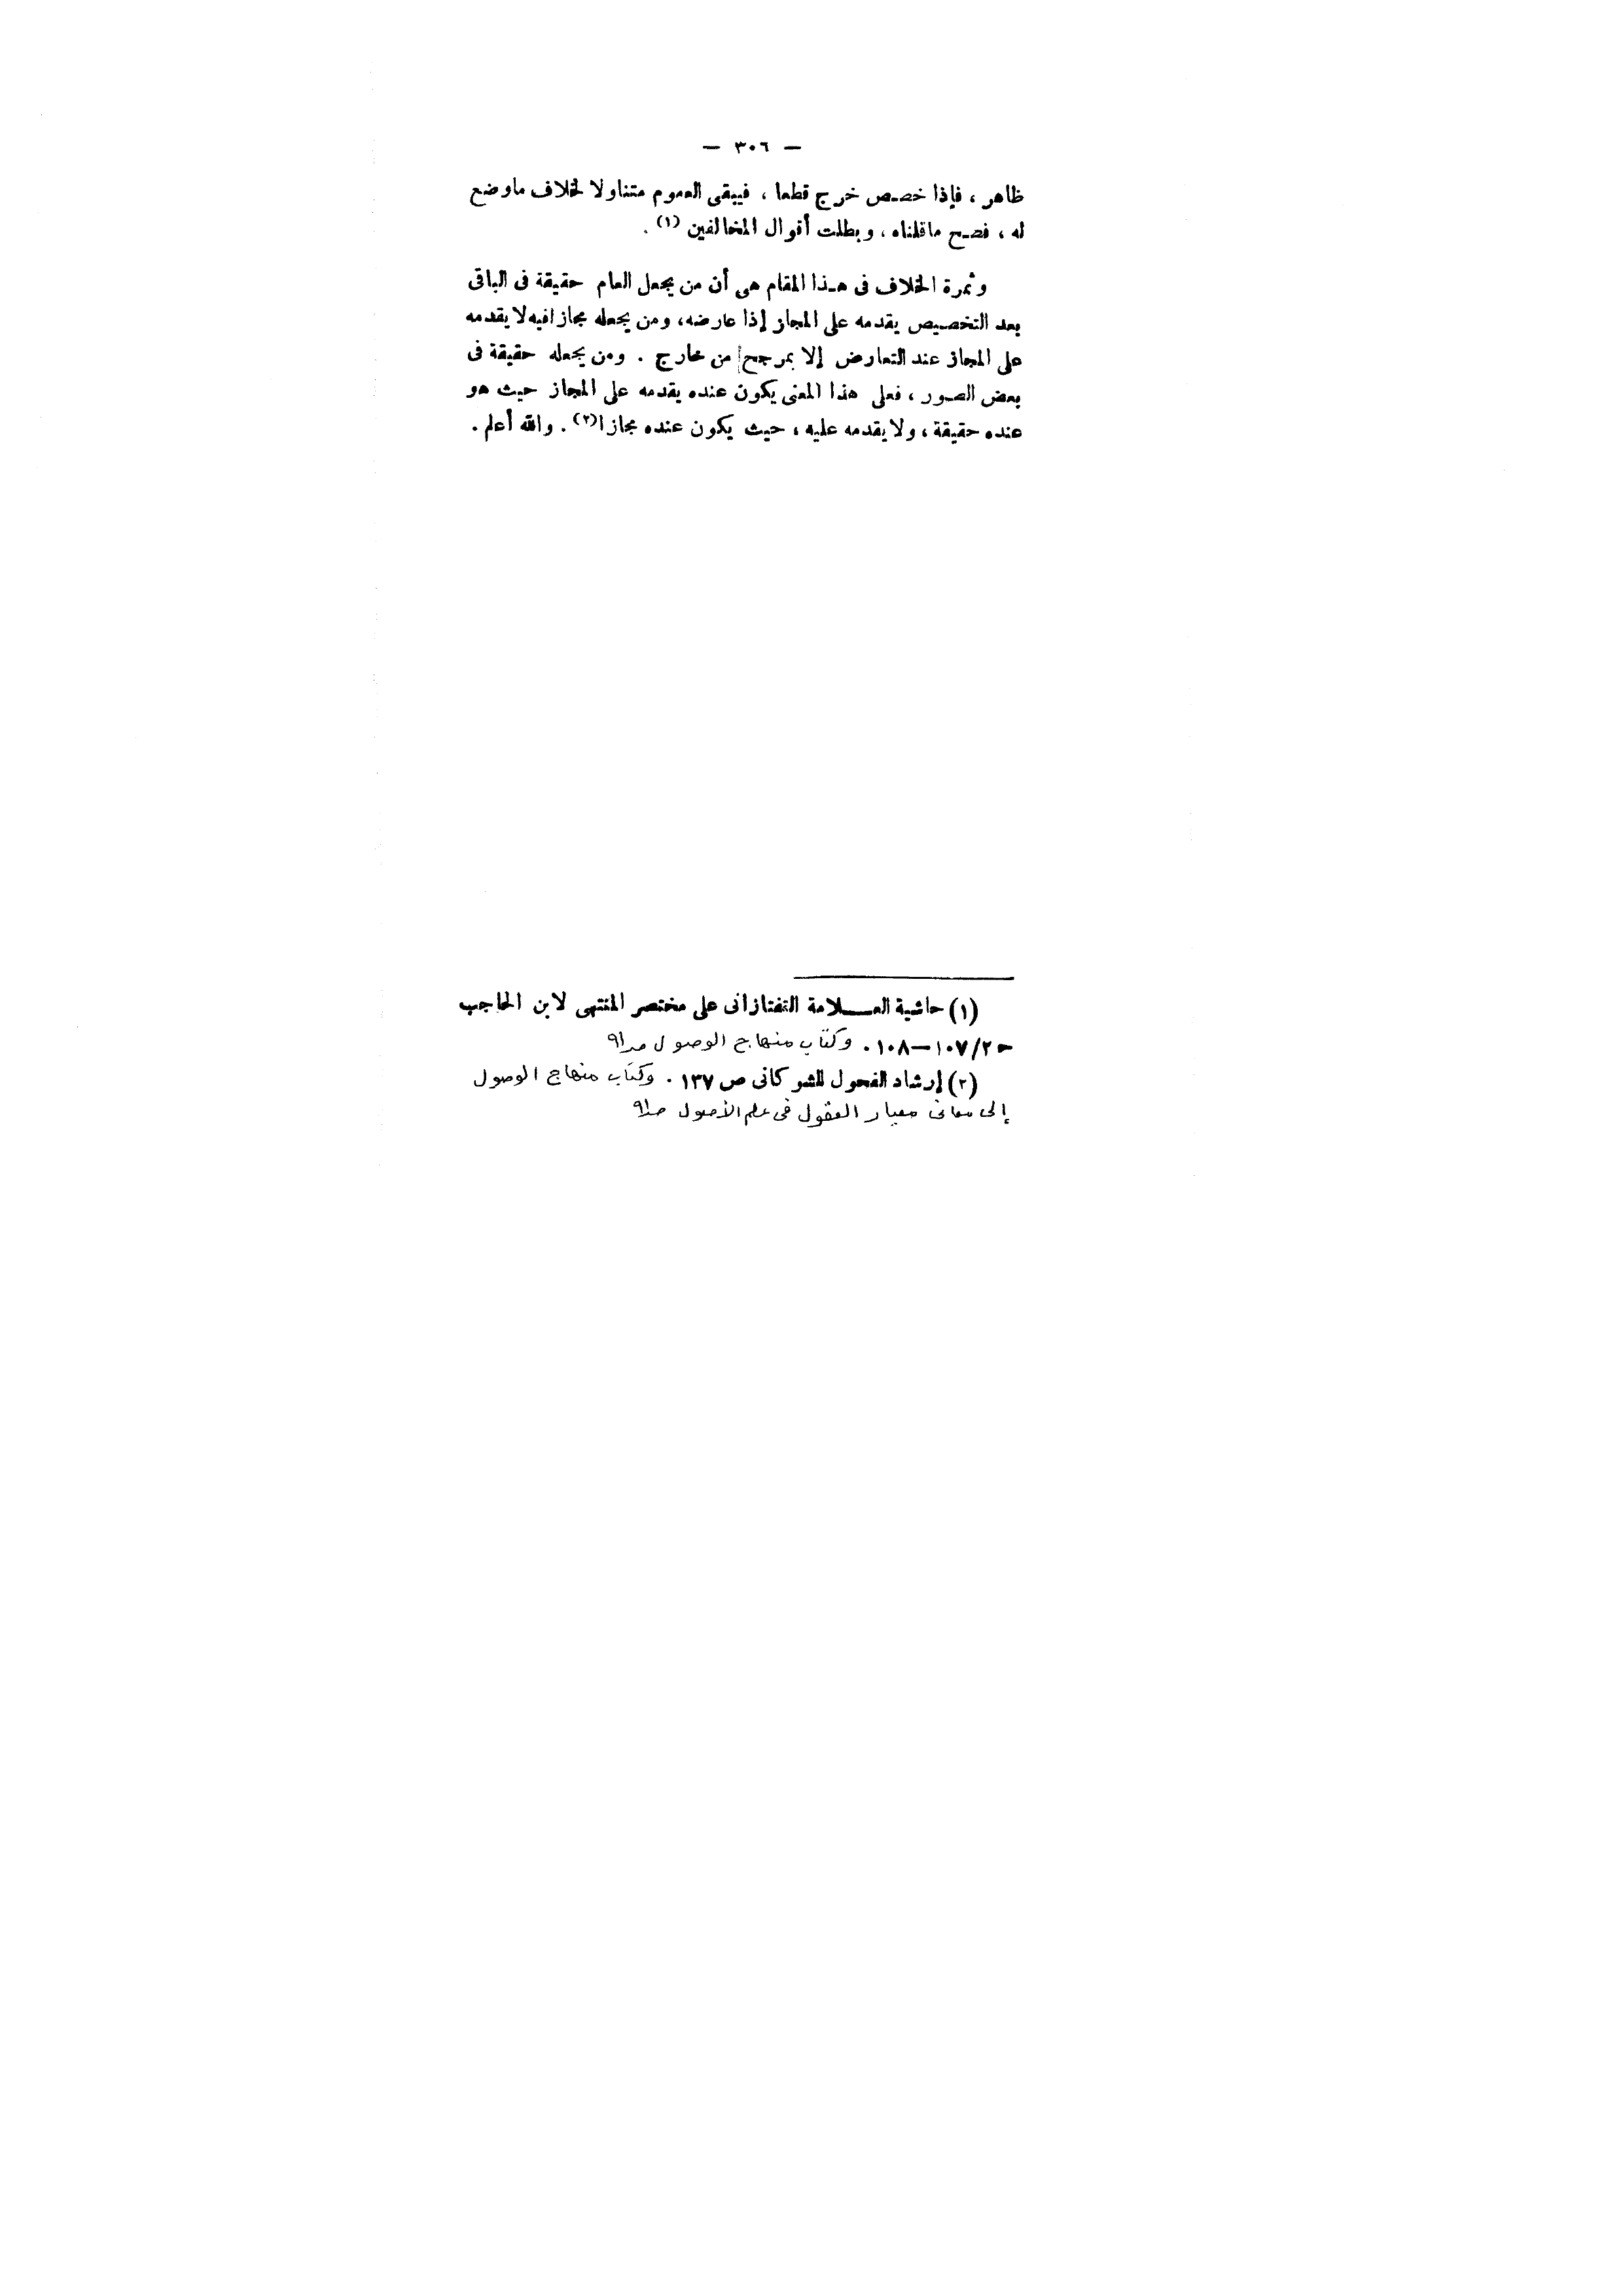 — ٣٠٦ —
ظاهر ، فإذا خصص خرج قطعا ، فيبقى العموم متناولا لخلاف ماوضع
له ، فصح ماقلناه ، وبطلت أقوال المخالفين (١) .
وثمرة الخلاف فى هذا المقام هى أن من يجعل العام حقيقة فى الباقى
بعد التخصيص يقدمه على المجاز إذا عارضه، ومن يجعله مجازا فيه لا يقدمه
على المجاز عند التعارض إلا بمرجح من خارج . ومن يجعله حقيقة فى
بعض الصور ، فعلى هذا المعنى يكون عنده يقدمه على المجاز حيث هو
عنده حقيقة ، ولا يقدمه عليه ، حيث يكون عنده مجازا(٢) . والله أعلم .
(١) حاشية العــــلامة التفتازانى على مختصر المنتهى لابن الحاجب
ح٢/١٠٧—١٠٨ . وكتاب منهاج الوصول صـ٩١
(٢) إرشاد الفحول للشوكانى ص ١٣٧ . وكتاب منهاج الوصول
إلى معانى معيار العقول فى علم الأصول صـ٩١